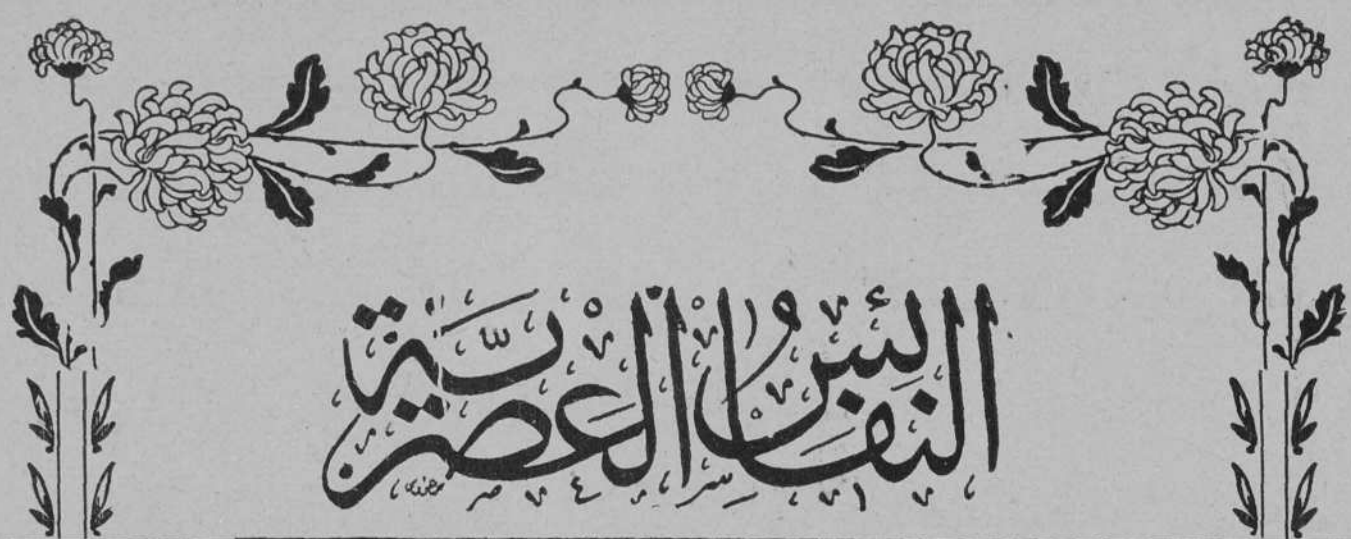 النَفَائسُ العَصْرِيَّة